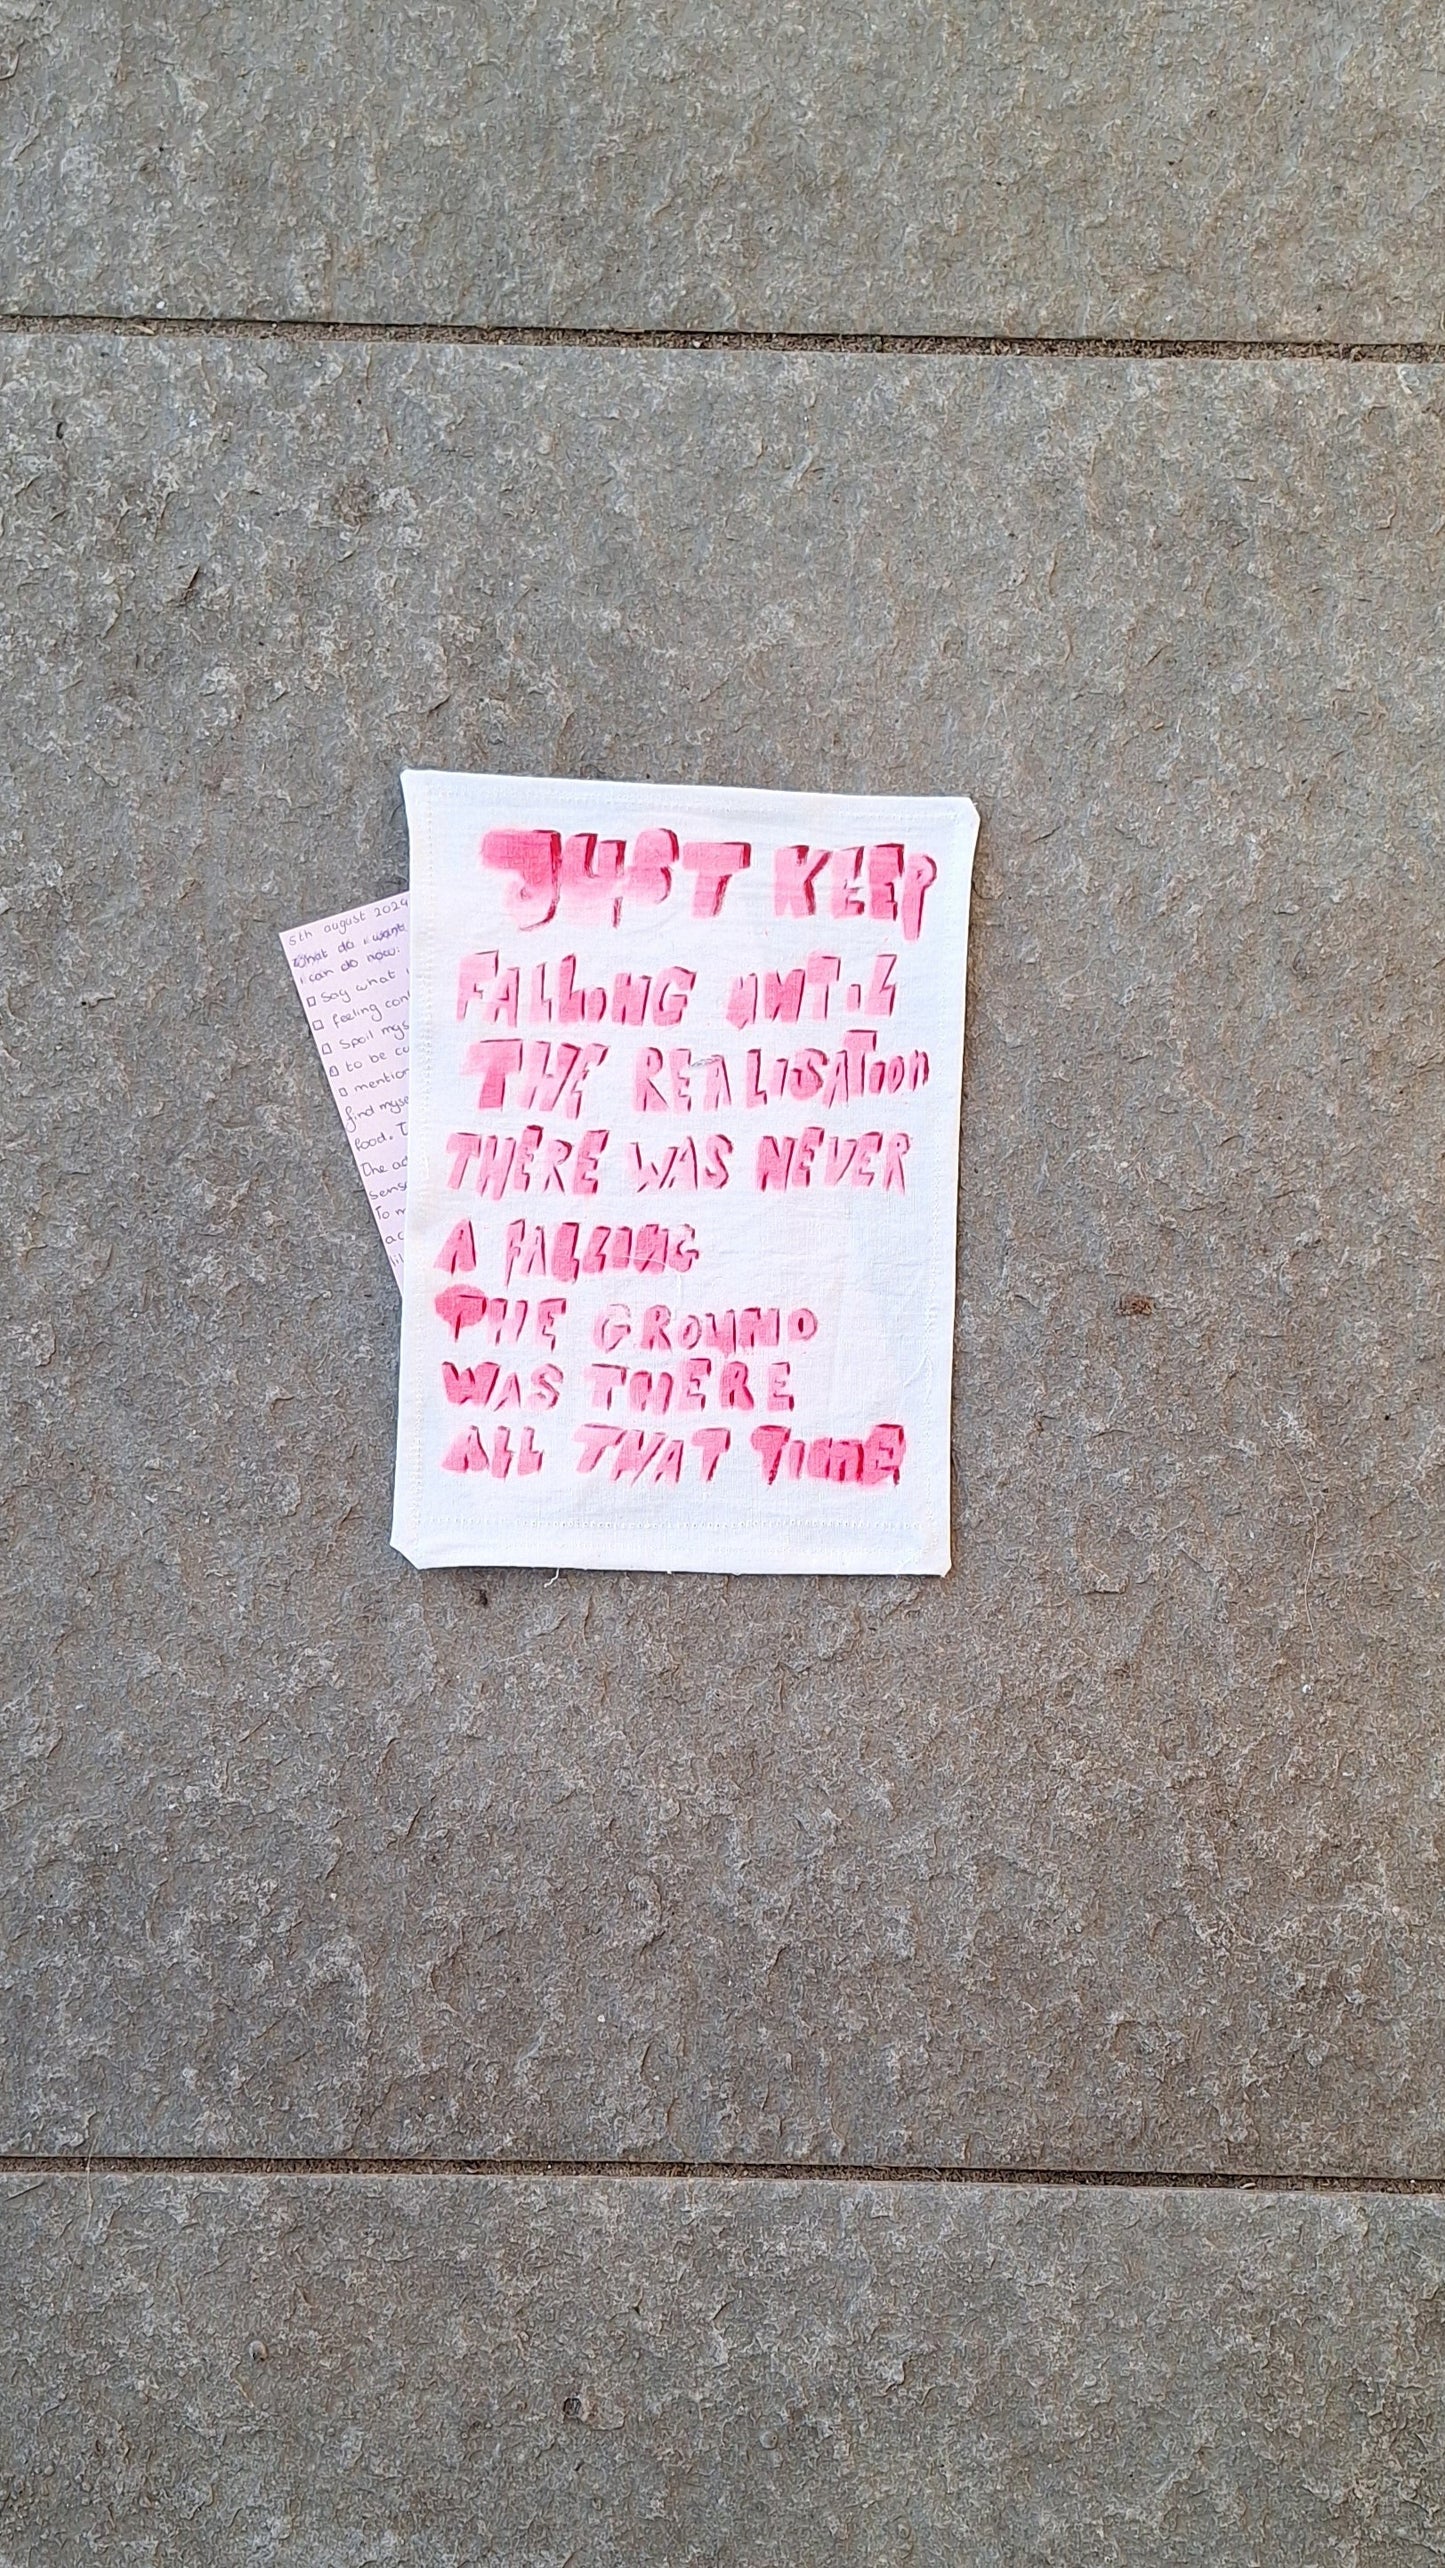 JUST KEEP
FALLING UNTIL
THE REALISATION
THERE WAS NEVER
A FALLING
THE GROUND
WAS THERE
ALL THAT TIME
5th august 2024
What do i want
i can do now:
Say what
feeling
Spoil
to be
find
food.
The
To